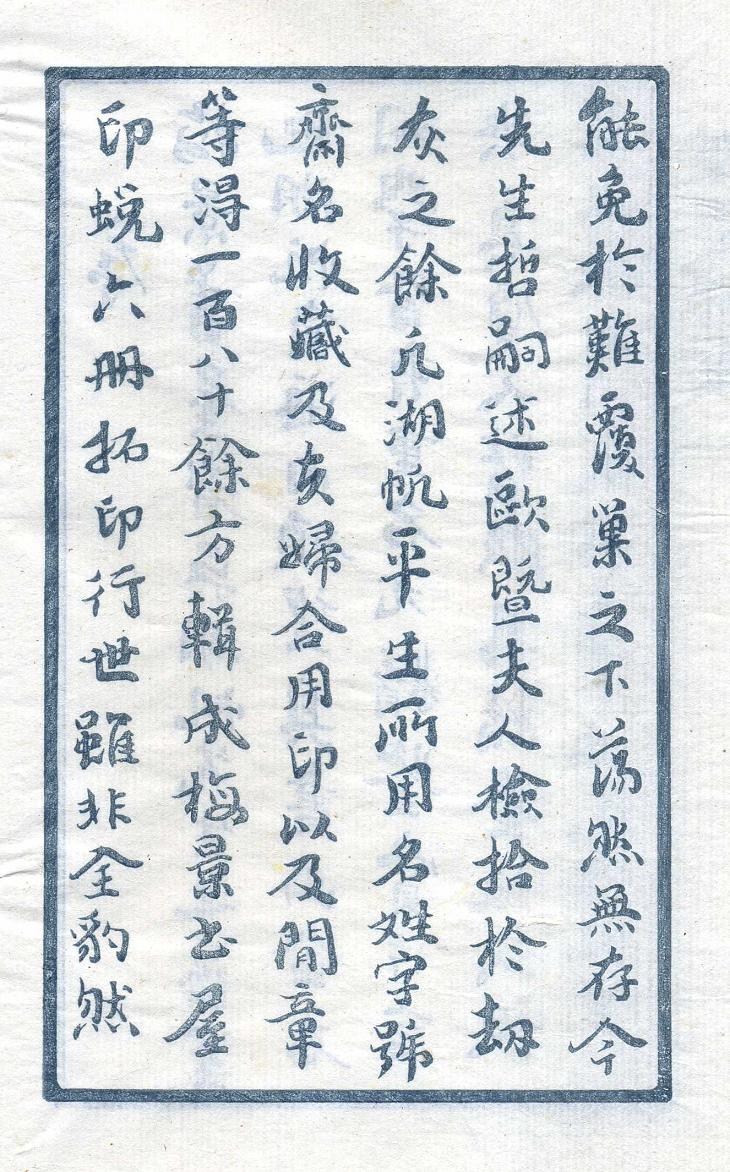 能免於難覆巢之下蕩然無存今
先生哲嗣述歐暨夫人檢拾於劫
灰之餘凡湖帆平生所用名姓字號
齋名收藏及夫婦合用印以及閒章
等得一百八十餘方輯成梅景書屋
印蛻六册拓印行世雖非全豹然